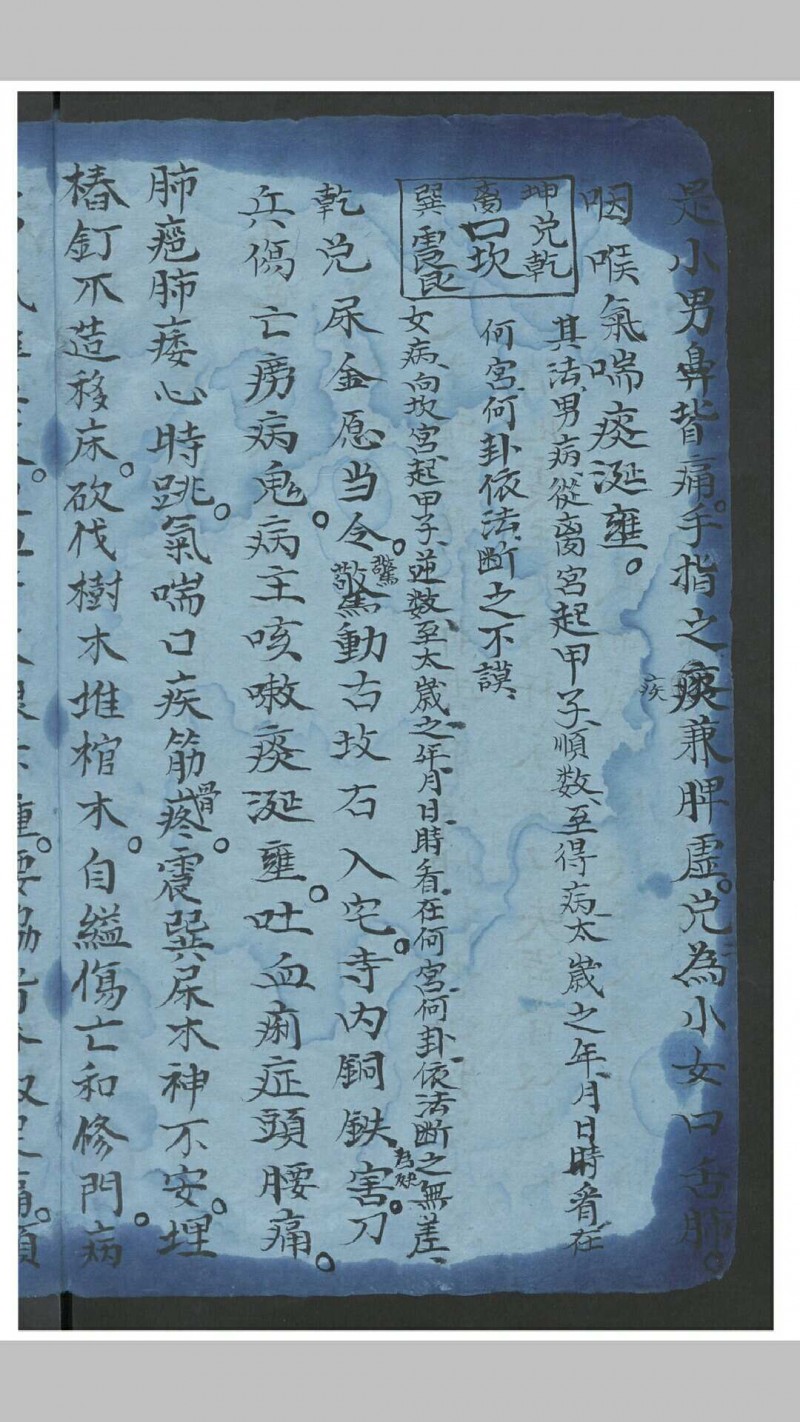 是小男鼻背痛。手指之痰兼脾虛。兌為小女口舌肺。
疾
咽喉氣喘痰涎壅。
其法、男病、從离宮起甲子、順数、至得病、太歲之年、月日時看在
何宮、何卦依法断之不謨、
坤兌乾
离口坎
巽震艮
女病、向坎宮、起甲子、逆数、至太歲之年月日時看在何宮、何卦依法断之無差、
乾兌尿金愿当令。驚動古坟石入宅。寺内銅鉄害。刀
驚
兵傷亡癆病鬼。病主咳嗽痰涎壅。吐血痢症頭腰痛。
肺瘧肺痿心時跳。氣喘口疾筋骨疼。震巽尿木神不安。埋
樁釘不造移床。砍伐樹木堆棺木。自縊傷亡和修門。病